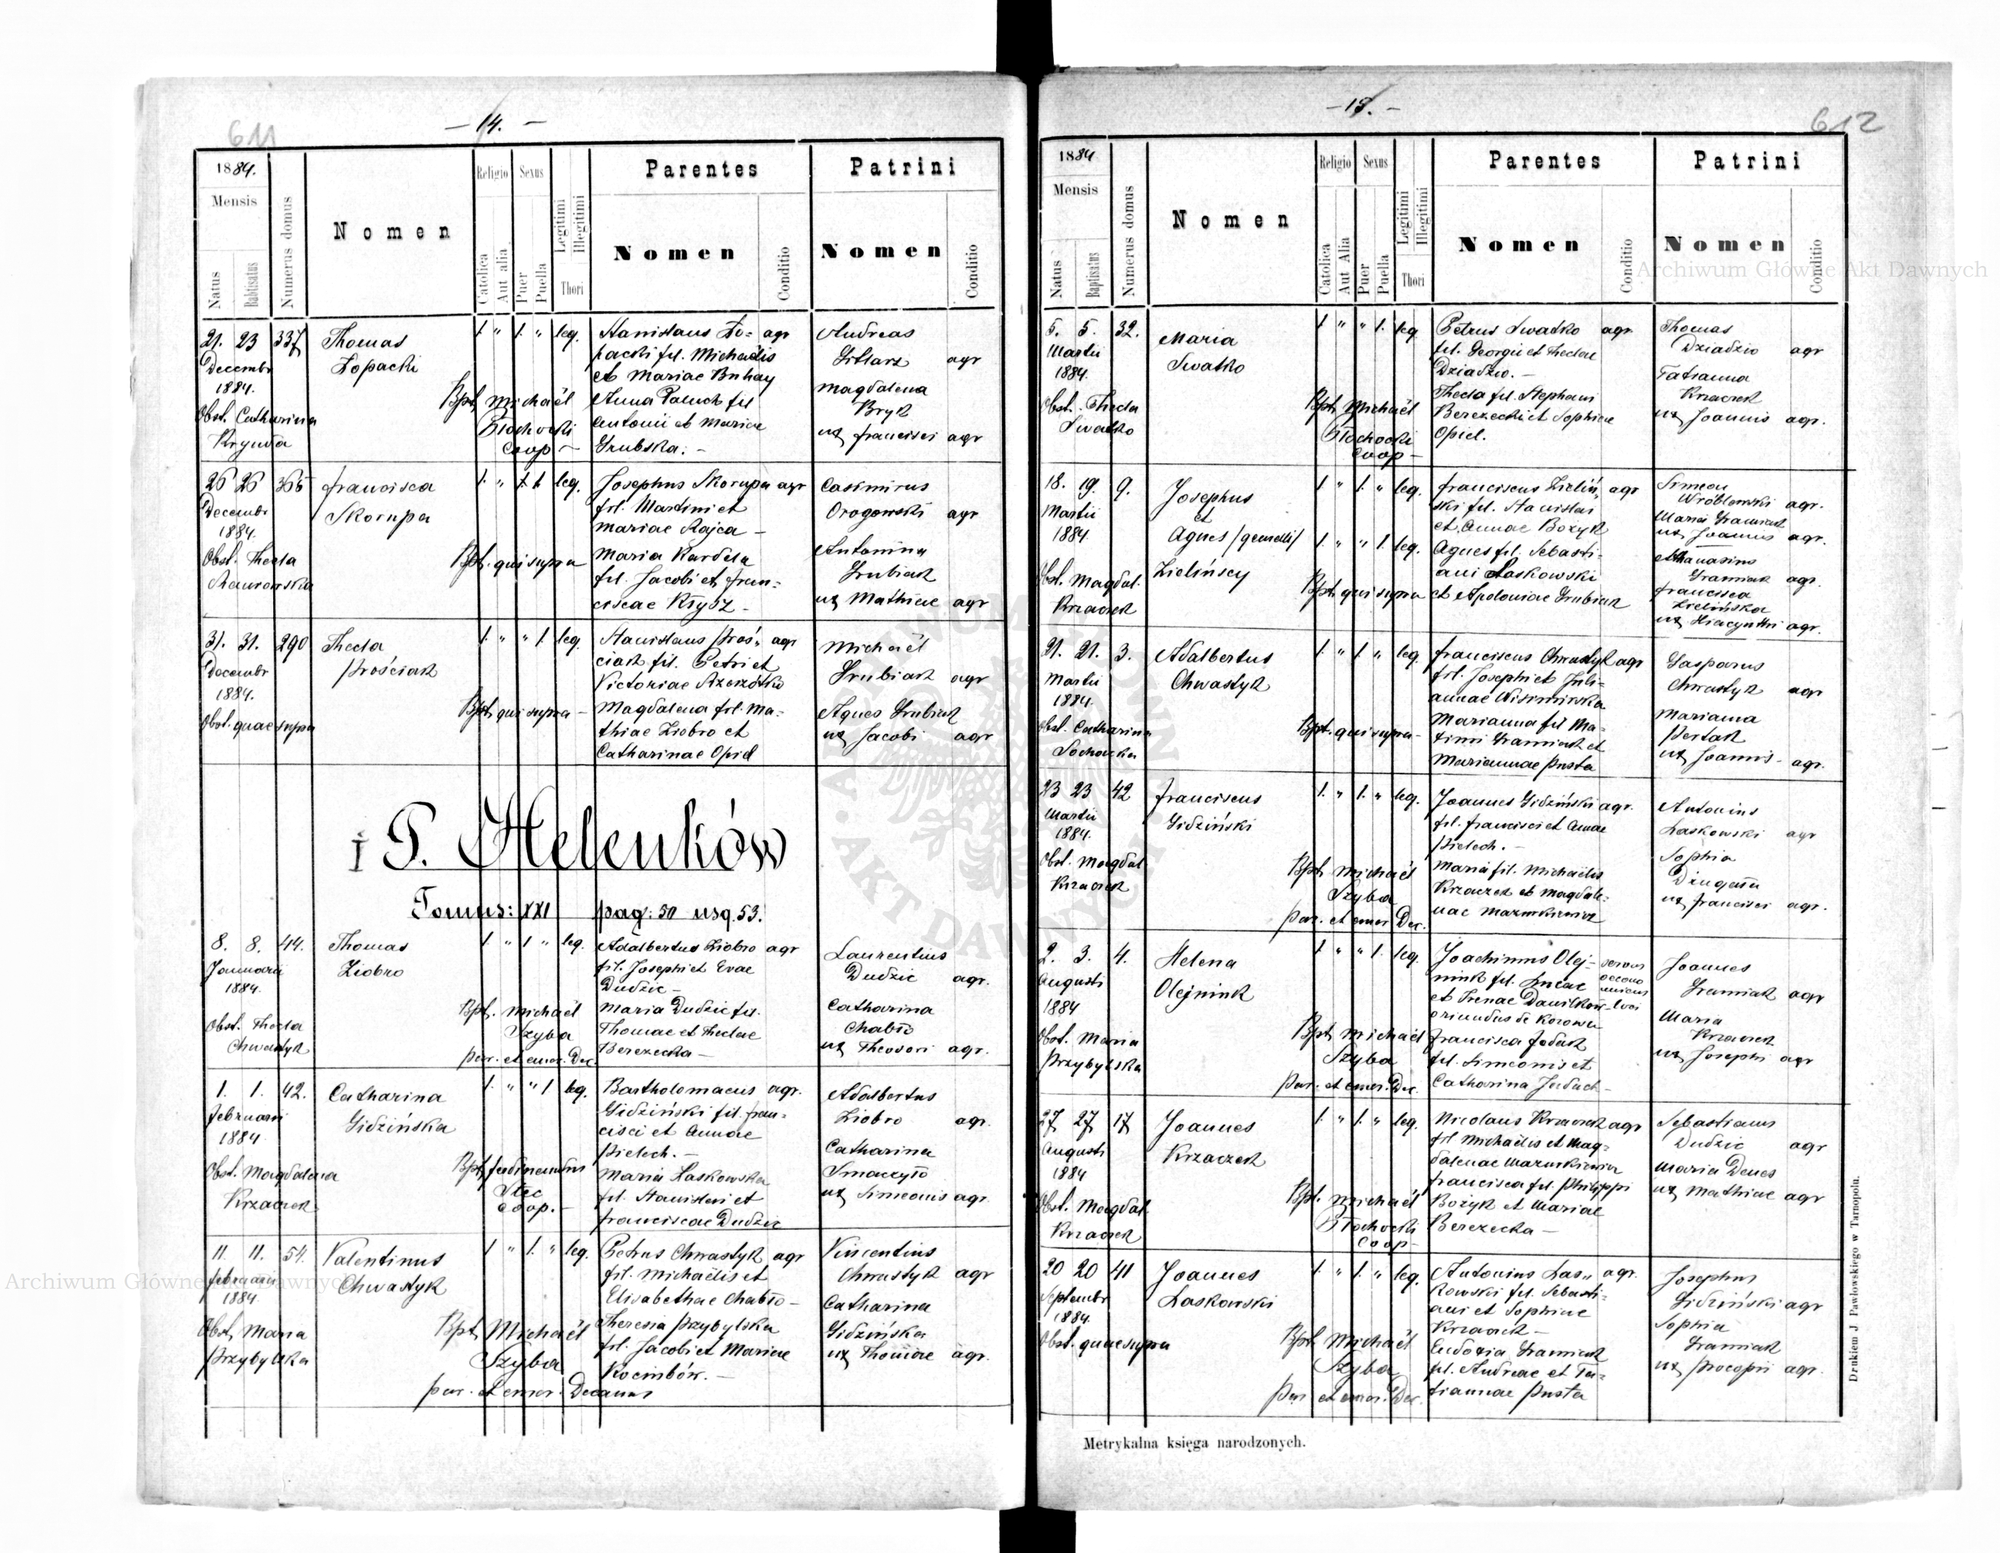 611
— 14. —
1884.
Mensis
Natus
Babtisatus
Numerus domus
Nomen
Religio
Catolica
Aut alia
Sexus
Puer
Puella
Legitimi
Illegitimi
Thori
Parentes
Nomen
Conditio
Patrini
Nomen
Conditio
21. 23 337 Thomas 1 " 1. " leg. Stanislaus Ło= agr Andreas
Decembr Łopacki packi fil. Michaelis agr
1884. et Mariae Buhay Magdalena
Bpt. Michaël Anna Paluch fil Bryk
Obst. Catharina Błochocki Antonii et Mariae ux francisci agr
Krywda Coop — Grubska. —
26 26 365 francisca 1. " 1 leg. Josephus Skorupa agr Casimirus
Decembr Skorupa fil. Martini et agr
1884. Mariae Rajca —
Obst. Thecla Bpt. qui supra Maria Kardela Antonina
fil. Jacobi et fran= Grubiak
ciscae Kłysz — ux Mathiae agr
31. 31. 290 Thecla 1. " " 1 leg. Stanislaus Proś= agr Michaël
Decembr Prościak ciak fil. Petri et Grubiak agr
1884. Victoriae
Obst. quae supra Bpt. qui supra — Magdalena fil. Ma= Agnes Grubiak
thiae Ziobro et ux Jacobi agr
Catharinae Opiel
P. Helenków
Tomus: XXI pag: 50 usq. 53.
8. 8. 44. Thomas 1 " 1 " leg. Adalbertus Ziobro agr Laurentius
Januarii Ziobro fil. Josephi et Evae Dudzic agr.
1884. Dudzic —
Obst. Thecla Bpt. Michaël Maria Dudzic fil. Catharina
Chwastyk Szyba Thomae et Theclae Chabło
par. et emer. Dec. Berezecka — ux Theodori agr.
1. 1. 42. Catharina 1. " " 1 leg. Bartholomaeus agr. Adalbertus
februarii Gidzińska Gidziński fil. fran= Ziobro agr.
1884 cisci et Annae Catharina
Pielech. —
Obst. Magdalena Bpt. ferdinandus Maria Laskowska
Krzaczek Stec fil. Stanislai et ux Simeonis agr.
Coop. — franciscae Dudzic
11. 11. 54. Valentinus 1 " 1. " leg. Petrus Chwastyk agr Vincentius
februarii Chwastyk fil. Michaëlis et Chwastyk agr
1884 Elisabethae Chabło — Catharina
Obst. Maria Bpt. Michaël Theresia Przybylska Gidzińska
Przybylska Szyba fil. Jacobi et Mariae ux Thomae agr.
par. et emer. Decanus
612
— 15. —
1884
Mensis
Natus
Baptisatus
Numerus domus
Nomen
Religio
Catolica
Aut Alia
Sexus
Puer
Puella
Legitimi
Illegitimi
Thori
Parentes
Nomen
Conditio
Patrini
Nomen
Conditio
5. 5. 32. Maria 1 " " 1. leg Petrus Swatko agr Thomas
Martii Swatko fil. Georgii et Theclae Dziadzio agr
1884. Dziadzio. — Tatianna
Obst. Thecla Bpt. Michaël Thecla fil. Stephani Krzaczek
Swatko Błochocki Berezecki et Sophiae ux Joannis agr.
Coop — Opiel.
18. 19. 9. Josephus 1 " 1. " leg. franciscus Zieliń= agr Simeon
Martii et ski fil. Stanislai Wróblewski agr.
1884. Agnes /gemelli/ 1. " " 1. leg. et Annae Bożyk Maria Gramiak
Zielińscy Agnes fil. Sebasti= ux Joannis agr.
Obst. Magdal. Bpt. qui supra ani Laskowski Athanasius
Krzaczek et Apoloniae Grubiak Gramiak agr.
francisca
Zielińska
ux Hiacynthi agr.
21. 21. 3. Adalbertus 1 " 1 " leg. franciscus Chwastyk agr Gasparus
Martii Chwastyk fil. Josephi et Juli= Chwastyk agr
1884. annae
Obst. Catharina Bpt. qui supra — Marianna fil Ma= Marianna
thiae Gramiak et
Mariannae Pusta ux Joannis — agr.
23 23 42 franciscus 1. " 1. " leg. Joannes Gidziński agr. Antonius
Martii Gidziński fil. francisci et Annae Laskowski agr
1884. Pielech. — Sophia
Obst. Magdal Bpt. Michaël Maria fil. Michaelis
Krzaczek Szyba Krzaczek et Magdale= ux francisci agr.
par. et emer. Dec. nae Mazurkiewicz
2. 3. 4. Helena 1 " " 1. leg. Joachimus Olej= servus Joannes
Augusti Olejnink Gramiak agr
1884 et Irenae Maria
Obst. Maria Bpt. Michaël oriundus de Krzaczek
Przybylska Szyba ux Josephi agr
par. et emer. Dec. fil. Simeonis et
27 27 17 Joannes 1 " 1. " leg. Nicolaus Krzaczek agr Sebastianus
Augusti Krzaczek fil Michaëlis et Mag= Dudzic agr
1884 dalenae Mazurkiewicz
francisca fil. Philippi Maria
Obst. Magdal Bpt. Michaël Bożyk et Mariae ux Mathiae agr
Krzaczek Błochocki Berezecka —
Coop —
20 20 41 Joannes 1 " 1. " leg. Antonius Las= agr. Josephus
Septembr Laskowski kowski fil. Sebasti= Gidziński agr
1884. ani et Sophiae Sophia
Krzaczek —
Obst. quae supra Bpt. Michaël Eudoxia Gramiak Gramiak
Szyba fil. Andreae et Ta= ux Procopii agr.
par et emer. Dec. tiannae Pusta
Metrykalna księga narodzonych.
Drukiem J. Pawłowskiego w Tarnopolu.
Archiwum Główne Akt Dawnych
Archiwum Główne Akt Dawnych